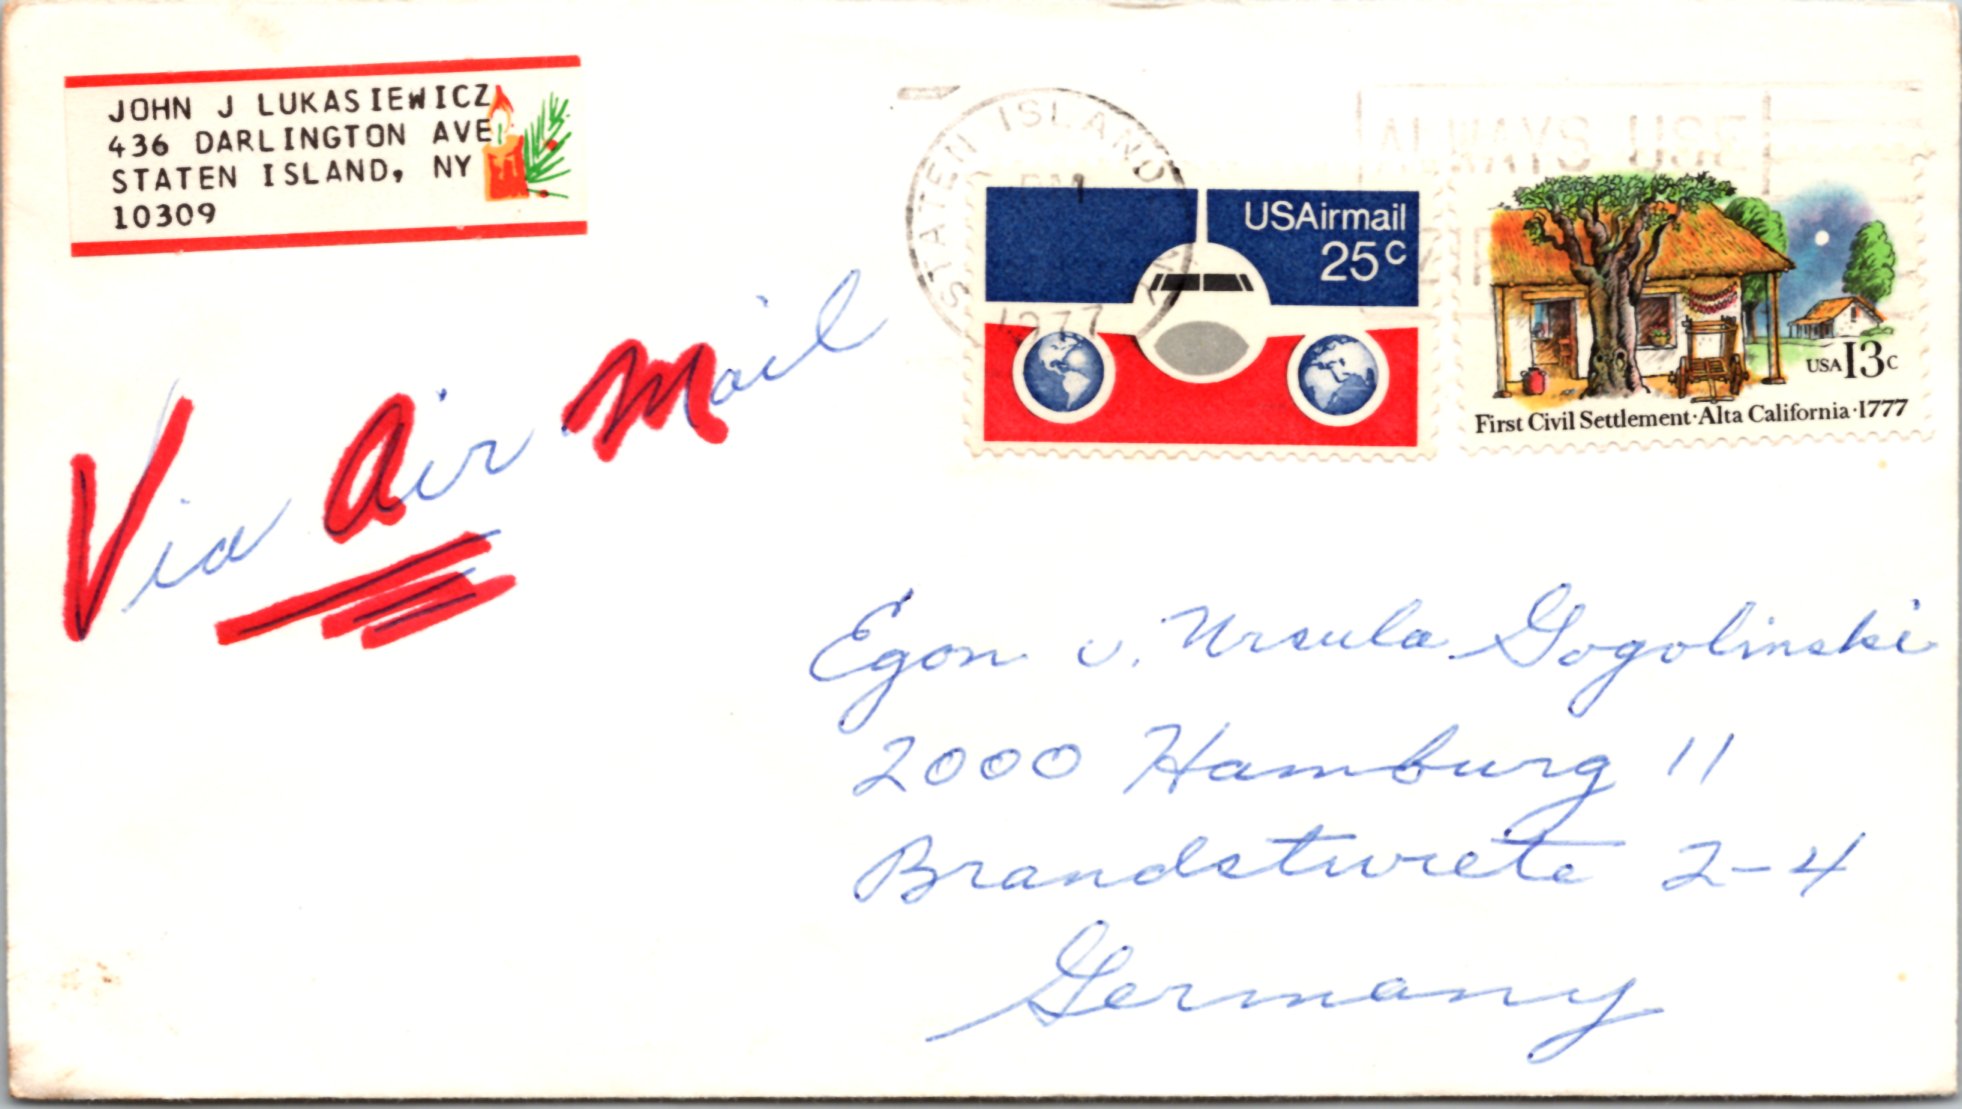 JOHN J LUKASIEWICZ
436 DARLINGTON AVE
STATEN ISLAND, NY
10309
STATEN ISLAND, NY
PM
1977
ALWAYS USE
ZIP
USAirmail
25c
USA 13c
First Civil Settlement·Alta California·1777
Via Air Mail
Egon u. Ursula Gogolinski
2000 Hamburg 11
Brandstwiete 2-4
Germany